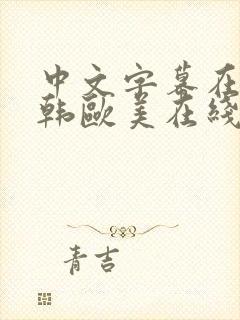 中文字幕在
韩欧美在线
青吉